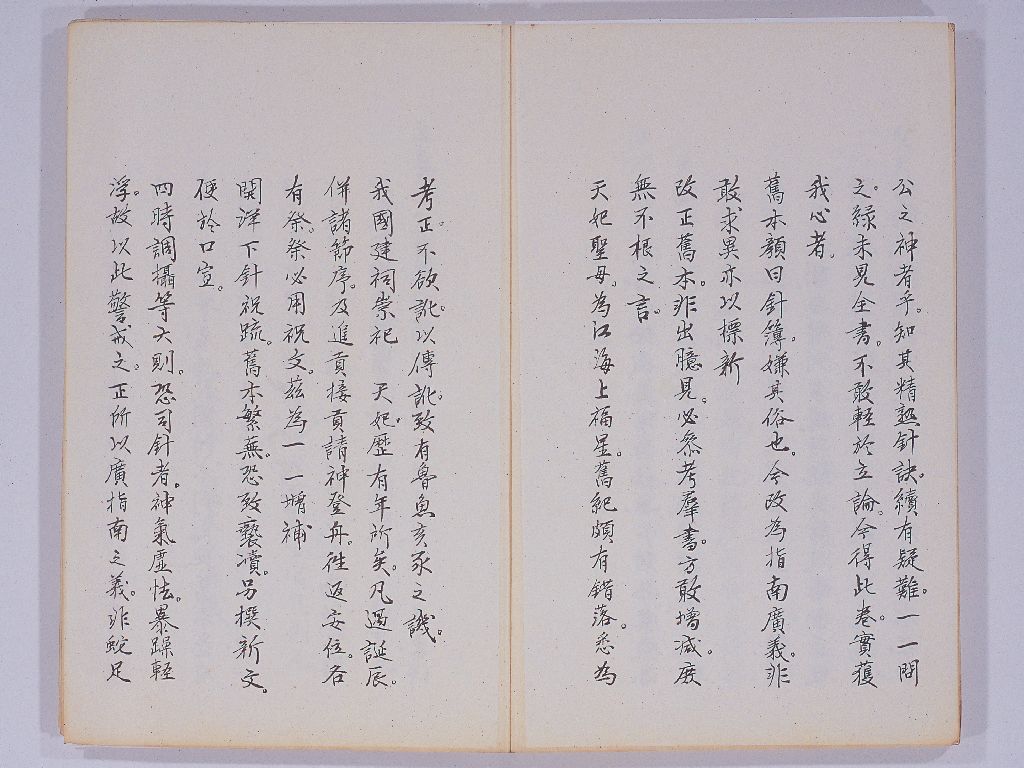 公之神者乎。知其精熟針訣。續有疑難。一一問
之。緣未見全書。不敢輕於立論。今得此卷。實獲
我心者。
舊本顏曰針簿。嫌其俗也。今改為指南廣義。非
敢求異。亦以標新
改正舊本。非出臆見。必叅考羣書。方敢增减。庶
無不根之言。
天妃聖母。為江海上福星。舊紀頗有錯落。悉為
考正。不欲訛以傳訛。致有魯魚亥豕之譏。
我國建祠崇祀　天妃。歷有年所矣。凡遇誕辰。
併諸節序。及進貢接貢請神登舟。徃返安位。各
有祭。祭必用祝文。茲為一一增補
開洋下針祝䟽。舊本繁蕪。恐致褻瀆。另撰新文。
便於口宣。
四時調攝等六則。恐司針者。神氣虛怯。暴躁輕
浮。故以此警戒之。正所以廣指南之義。非蛇足